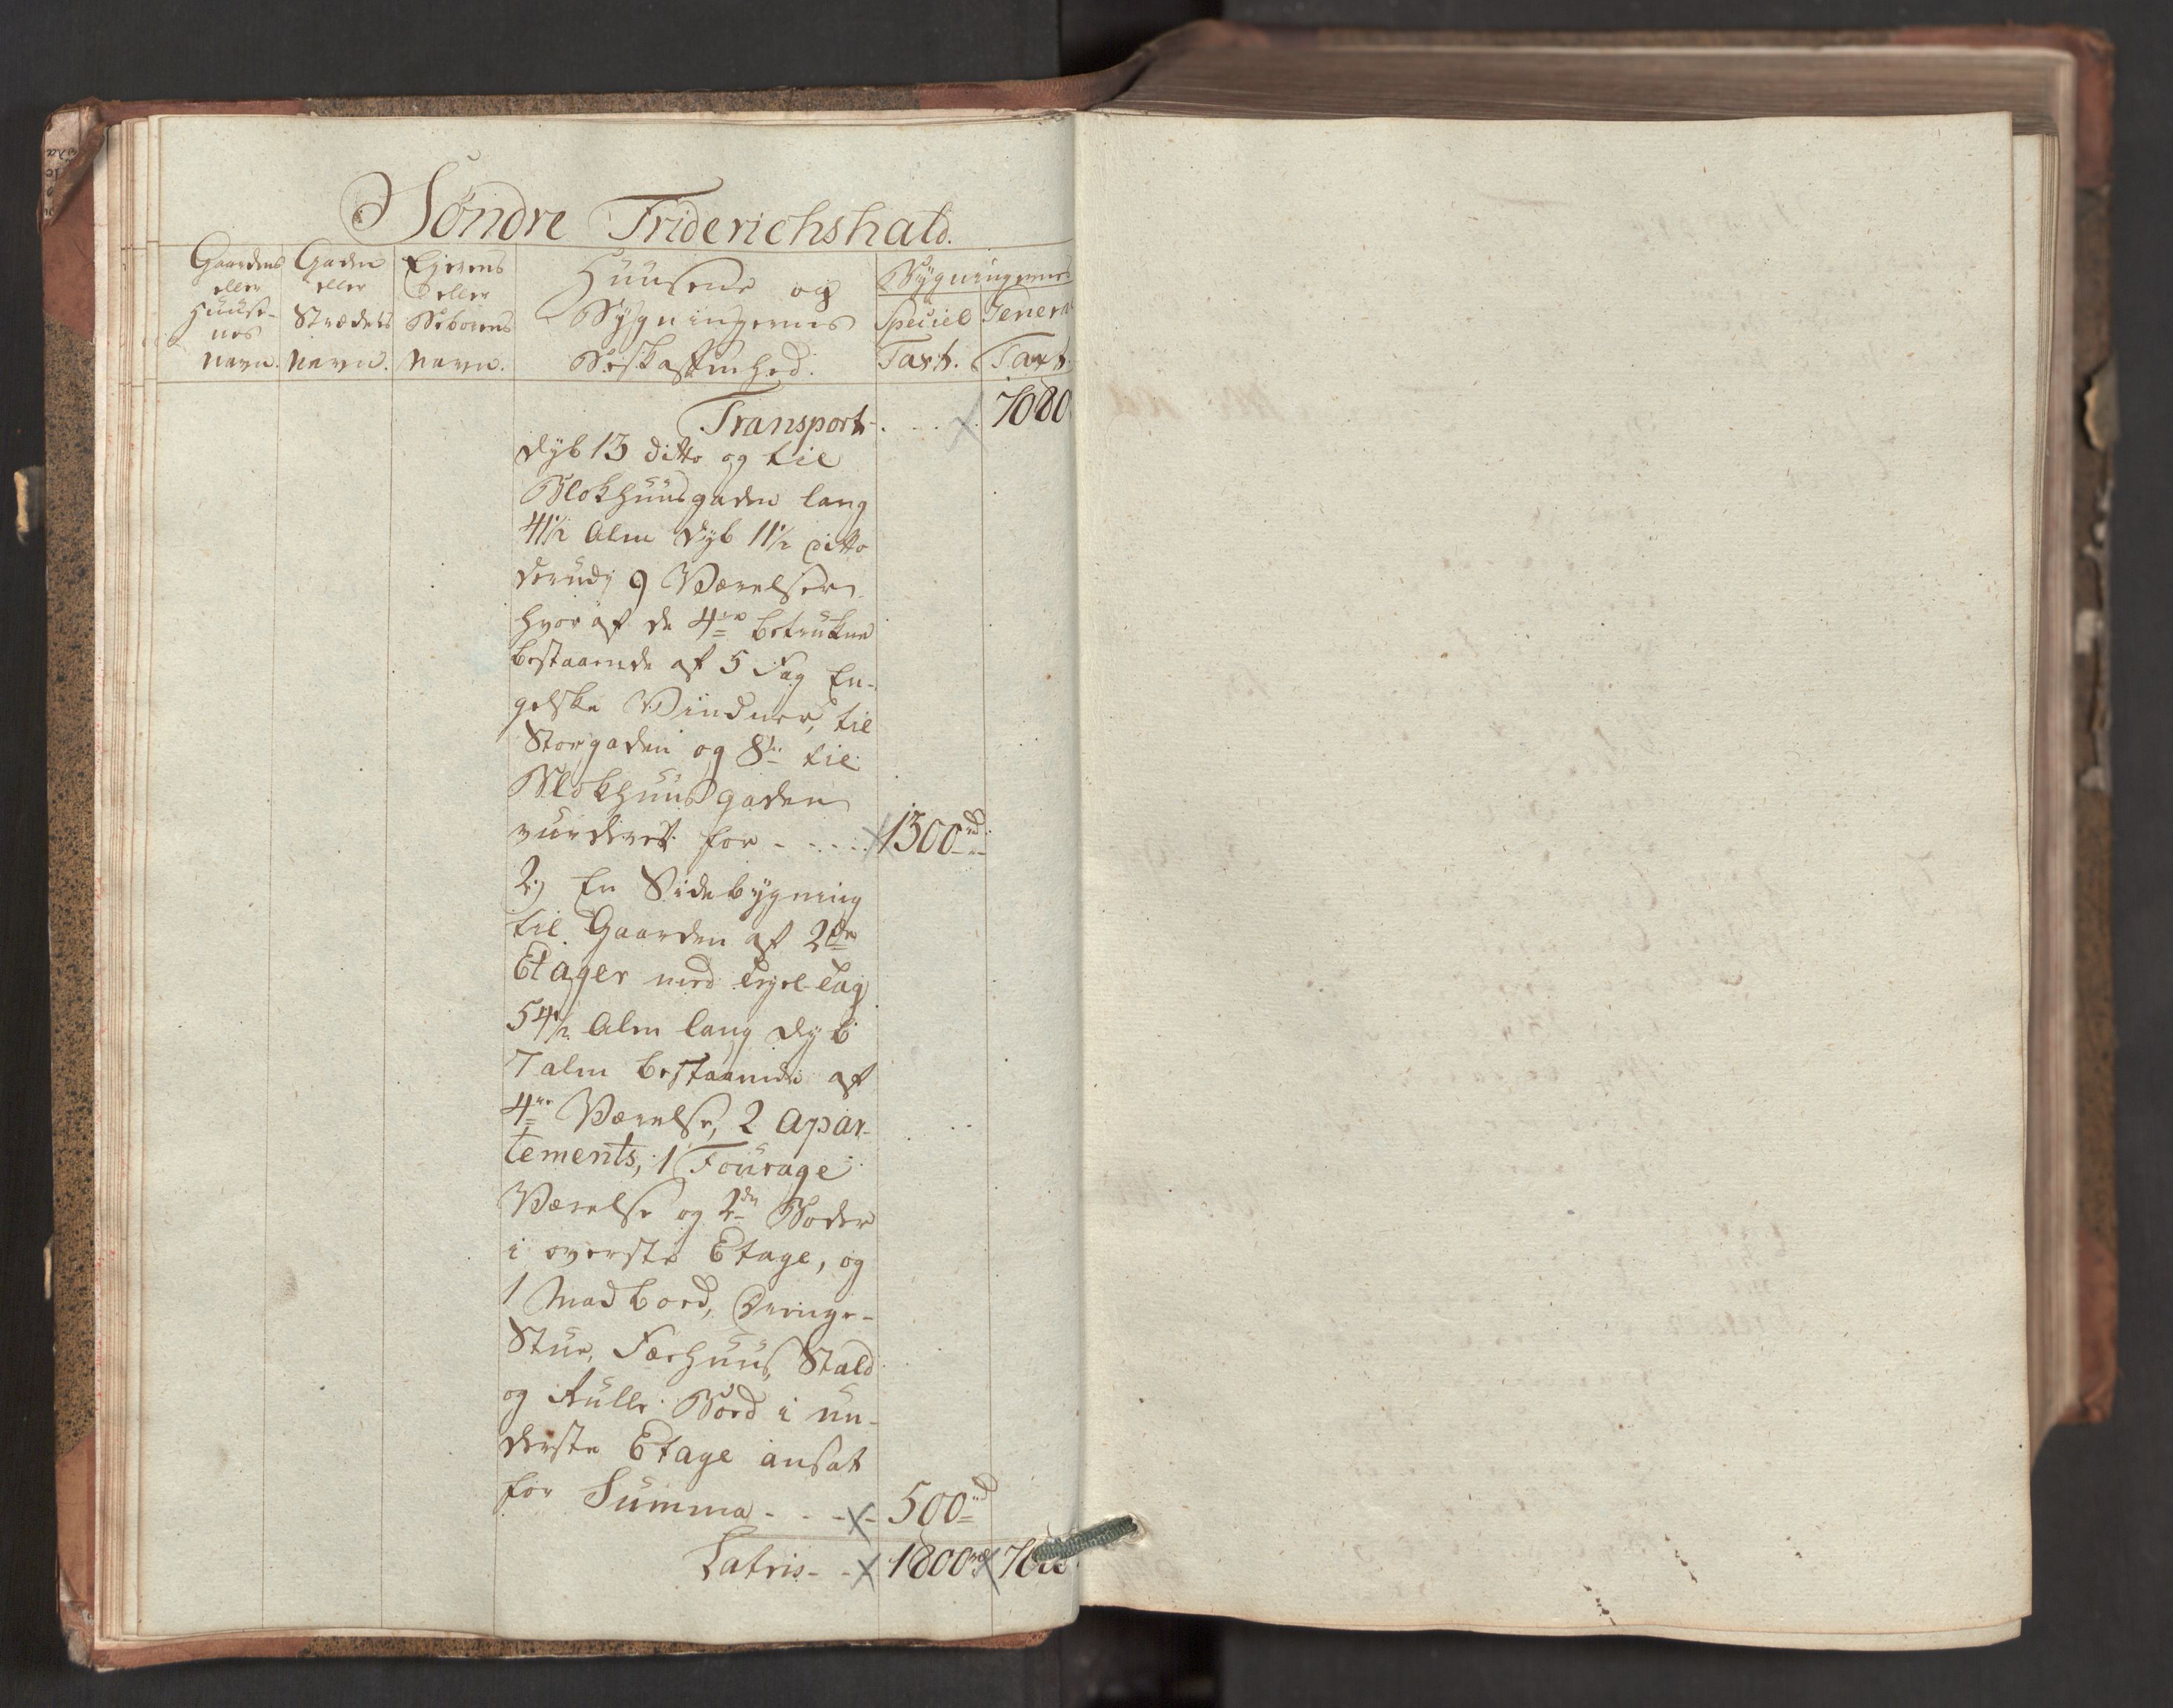 Søndre Friderichshald.
Gaardens eller Huuse- nes Navn.
Gaden eller Strædets Navn.
Ejerens eller Beboerens Navn.
Huusene og Bygningernes Beskaffenhed.
Bygningernes
Speciel Taxt.
General Taxt.
Transport . . . 7080
dyb 13 ditto og til
Blokhuusgaden lang
41½ Alen dyb 11½ ditto
derudj 9 Værelser
hvoraf de 4re betrukne
bestaaende af 5 Fag En-
gelske Vinduer, til
Storgaden og 8te til
Blokhuusgaden
vurderet for - - - - 1300rd
2) En Sidebygning
til Gaarden af 2de
Etager med Tegel-Tag
54½ Alen lang dyb
7 alen bestaaende af
4re Værelser, 2 Apar-
tements, 1 Fourage
Værelse og 2de Boder
i øverste Etage, og
1 Madbod, Drenge-
Stue, Færhuus, Stald
og Rulle-Bod i un-
derste Etage ansat
for Summa - - - 500rd
Latris - - 1800rd